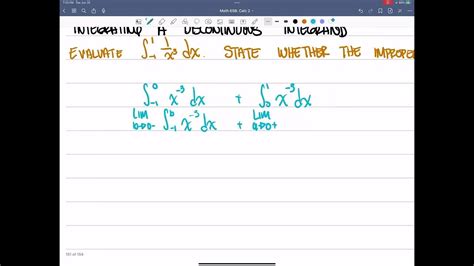 Math 6B: Calc 2
INTEGRATING A DISCONTINUOUS INTEGRAND
EVALUATE ∫₋₁¹ 1/x³ dx. STATE WHETHER THE IMPROPER
∫₋₁⁰ x⁻³ dx + ∫₀¹ x⁻³ dx
LIM b→0⁻ ∫₋₁ᵇ x⁻³ dx + LIM a→0⁺